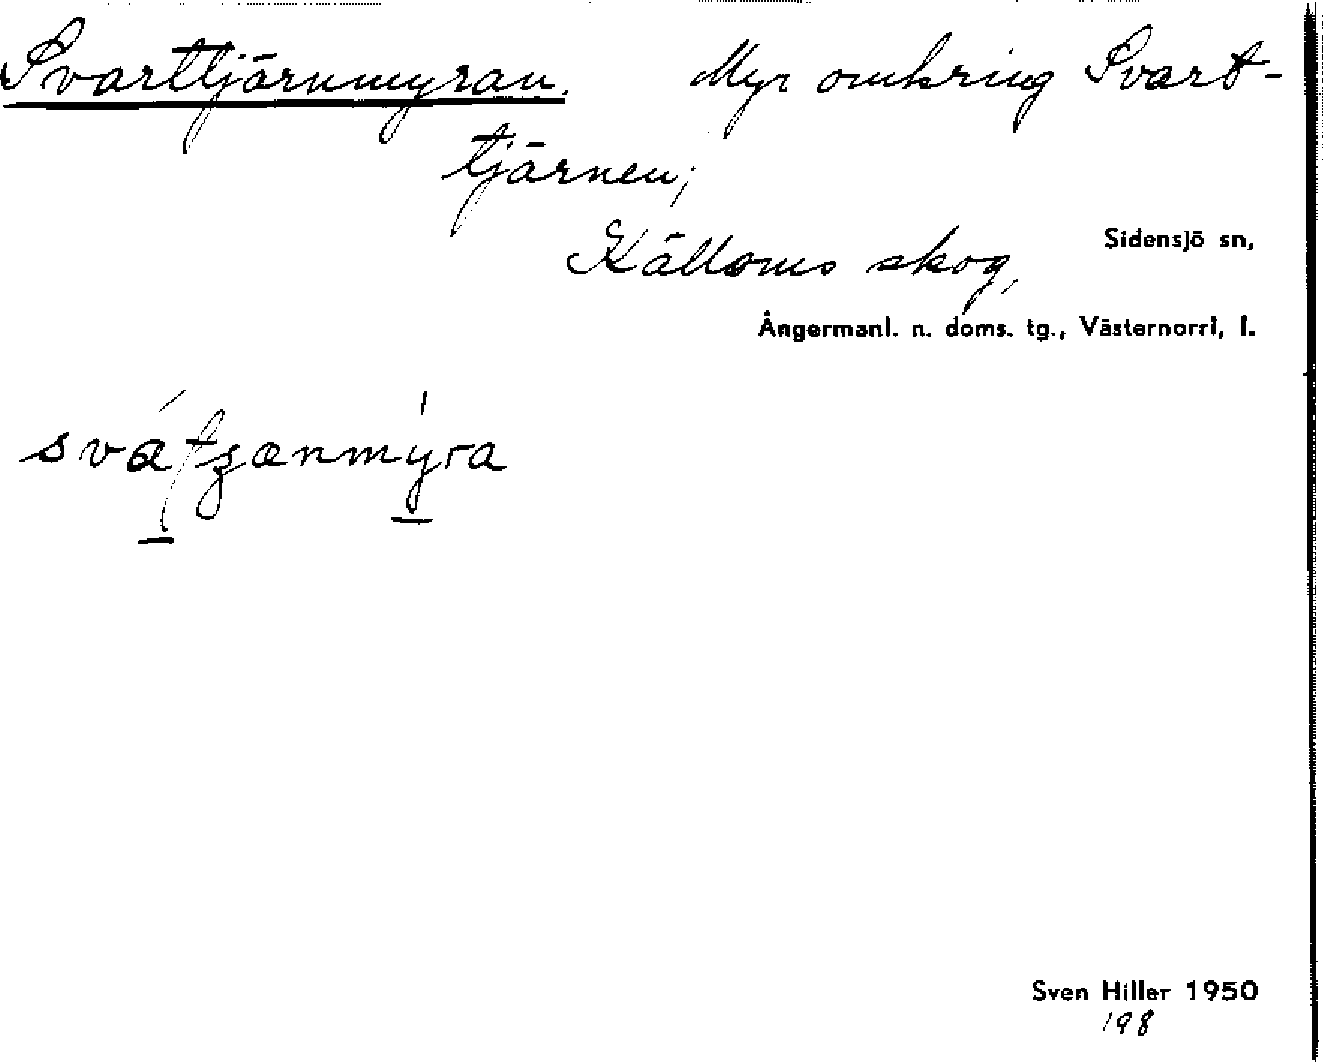 Svarttjärnmyran. Myr omkring Svart-
tjärnen;
Källoms skog, Sidensjö sn,
Ångermanl. n. doms. tg., Västernorrl. l.
Sven Hiller 1950
198